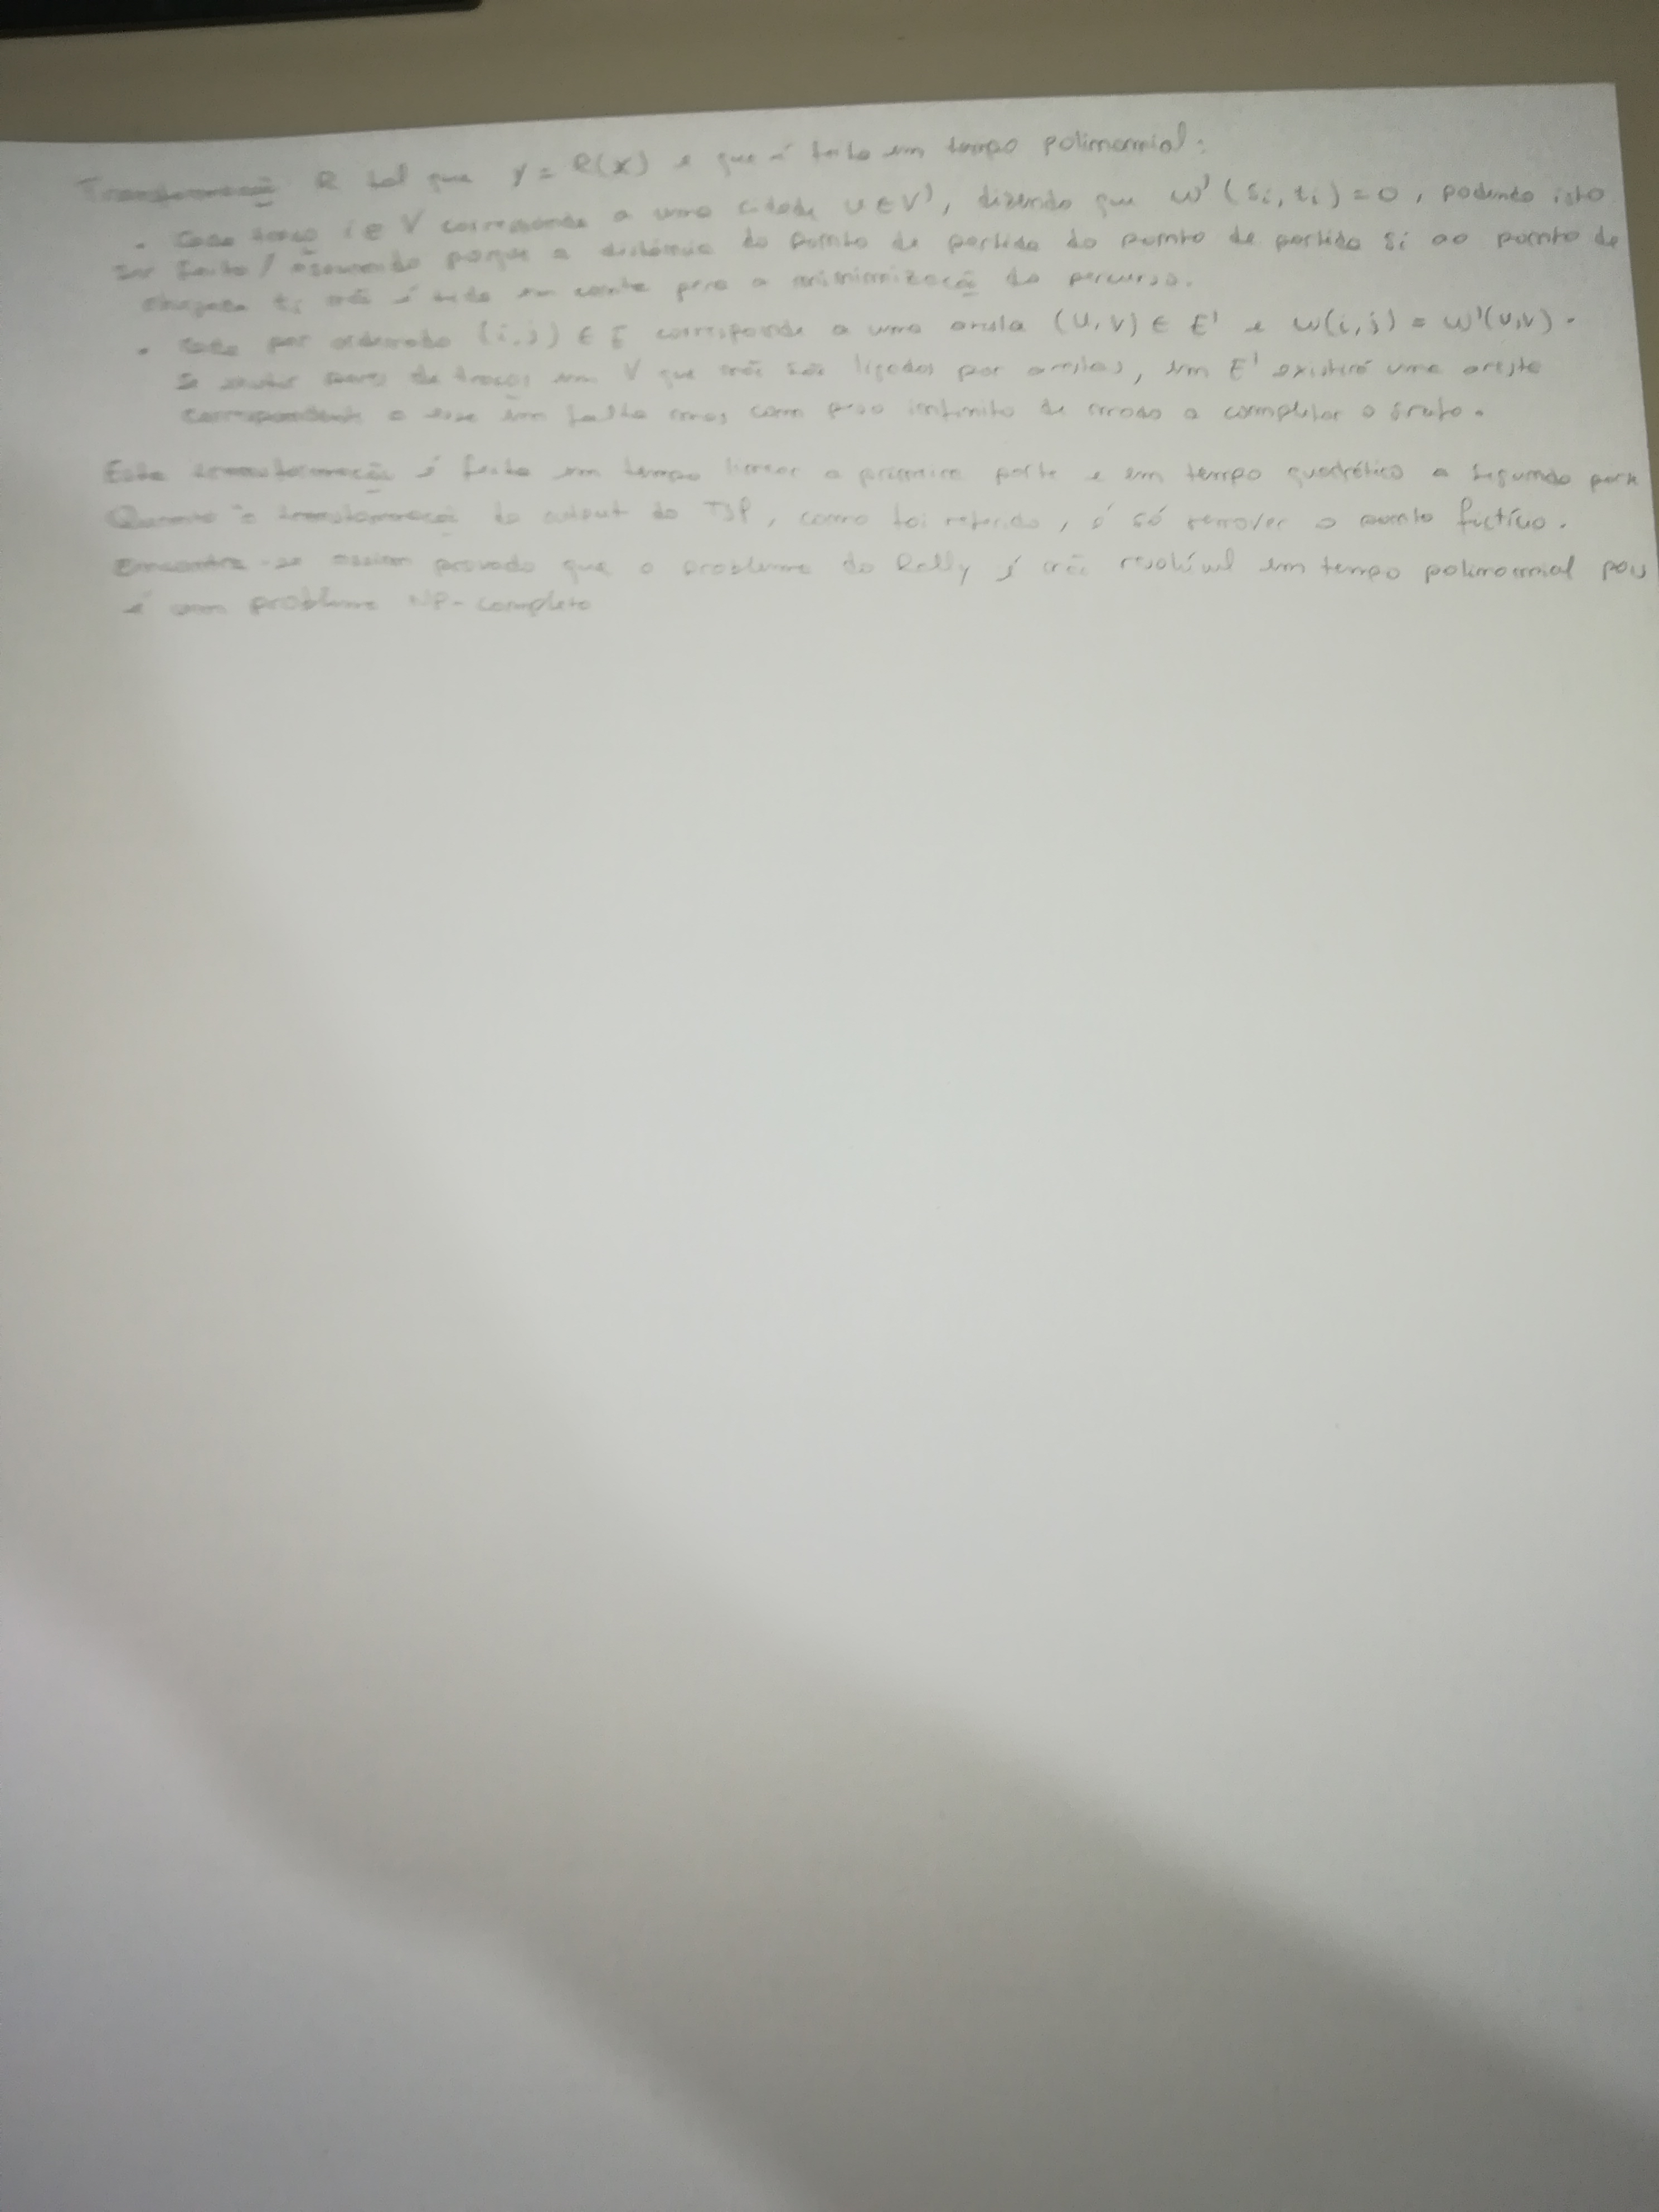 Transformação R tal que Y = R(X) e que é feito em tempo polinomial:
• Cada troço i ∈ V corresponde a uma cidade u ∈ V', dizendo que w'(si, ti) = 0, podendo isto
ser feito / assumido porque a distância do ponto de partida do ponto de partida si ao ponto de
chegada ti não é tida em conta para a minimização do percurso.
• Cada par ordenado (i, j) ∈ E corresponde a uma aresta (u, v) ∈ E' e w(i, j) = w'(u, v).
Se pares de troços em V que não são ligados por arestas, em E' existirá uma aresta
correspondente a esse em falta mas com peso infinito de modo a completar o grafo.
Esta transformação é feita em tempo linear a primeira parte e em tempo quadrático a segunda parte
Quanto à transformação do output do TSP, como foi referido, é só remover o ponto fictício.
Encontra-se assim provado que o problema do Rally é não resolúvel em tempo polinomial pois
é um problema NP-completo